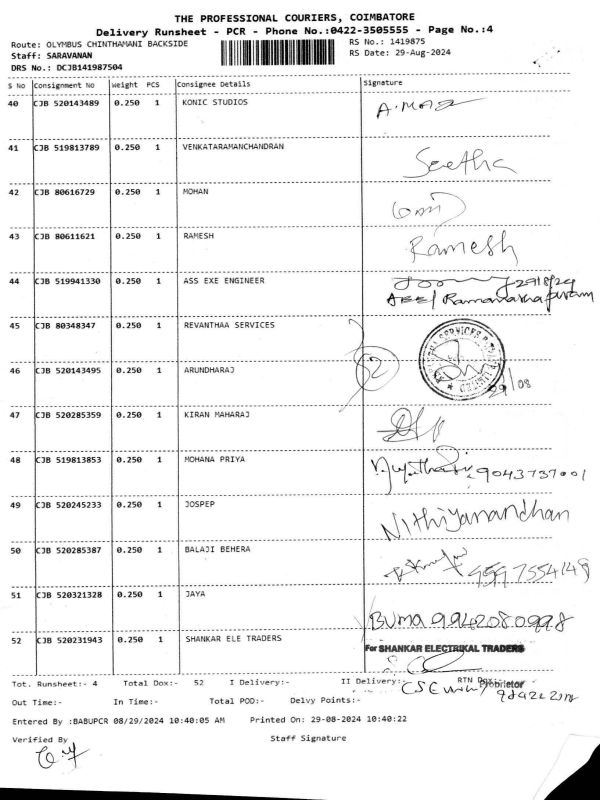 THE PROFESSIONAL COURIERS, COIMBATORE
Delivery Runsheet - PCR - Phone No.:0422-3505555 - Page No.:4
Route: OLYMBUS CHINTHAMANI BACKSIDE RS No.: 1419875
Staff: SARAVANAN RS Date: 29-Aug-2024
DRS No.: DCJB141987504
S No Consignment No Weight PCS Consignee Details Signature
40 CJB 520143489 0.250 1 KONIC STUDIOS
41 CJB 519813789 0.250 1 VENKATARAMANCHANDRAN Seetha
42 CJB 80616729 0.250 1 MOHAN
43 CJB 80611621 0.250 1 RAMESH Ramesh
44 CJB 519941330 0.250 1 ASS EXE ENGINEER 29/8/24
AEE/
45 CJB 80348347 0.250 1 REVANTHAA SERVICES
46 CJB 520143495 0.250 1 ARUNDHARAJ 52 29/08
47 CJB 520285359 0.250 1 KIRAN MAHARAJ
48 CJB 519813853 0.250 1 MOHANA PRIYA 9043737001
49 CJB 520245233 0.250 1 JOSPEP Nithiyanandhan
50 CJB 520285387 0.250 1 BALAJI BEHERA
51 CJB 520321328 0.250 1 JAYA BUMA 9942080998
52 CJB 520231943 0.250 1 SHANKAR ELE TRADERS For SHANKAR ELECTRIKAL TRADERS
Tot. Runsheet:- 4 Total Dox:- 52 I Delivery:- II Delivery:- RTN Dox:- Proprietor
Out Time:- In Time:- Total POD:- Delvy Points:-
Entered By :BABUPCR 08/29/2024 10:40:05 AM Printed On: 29-08-2024 10:40:22
Verified By Staff Signature